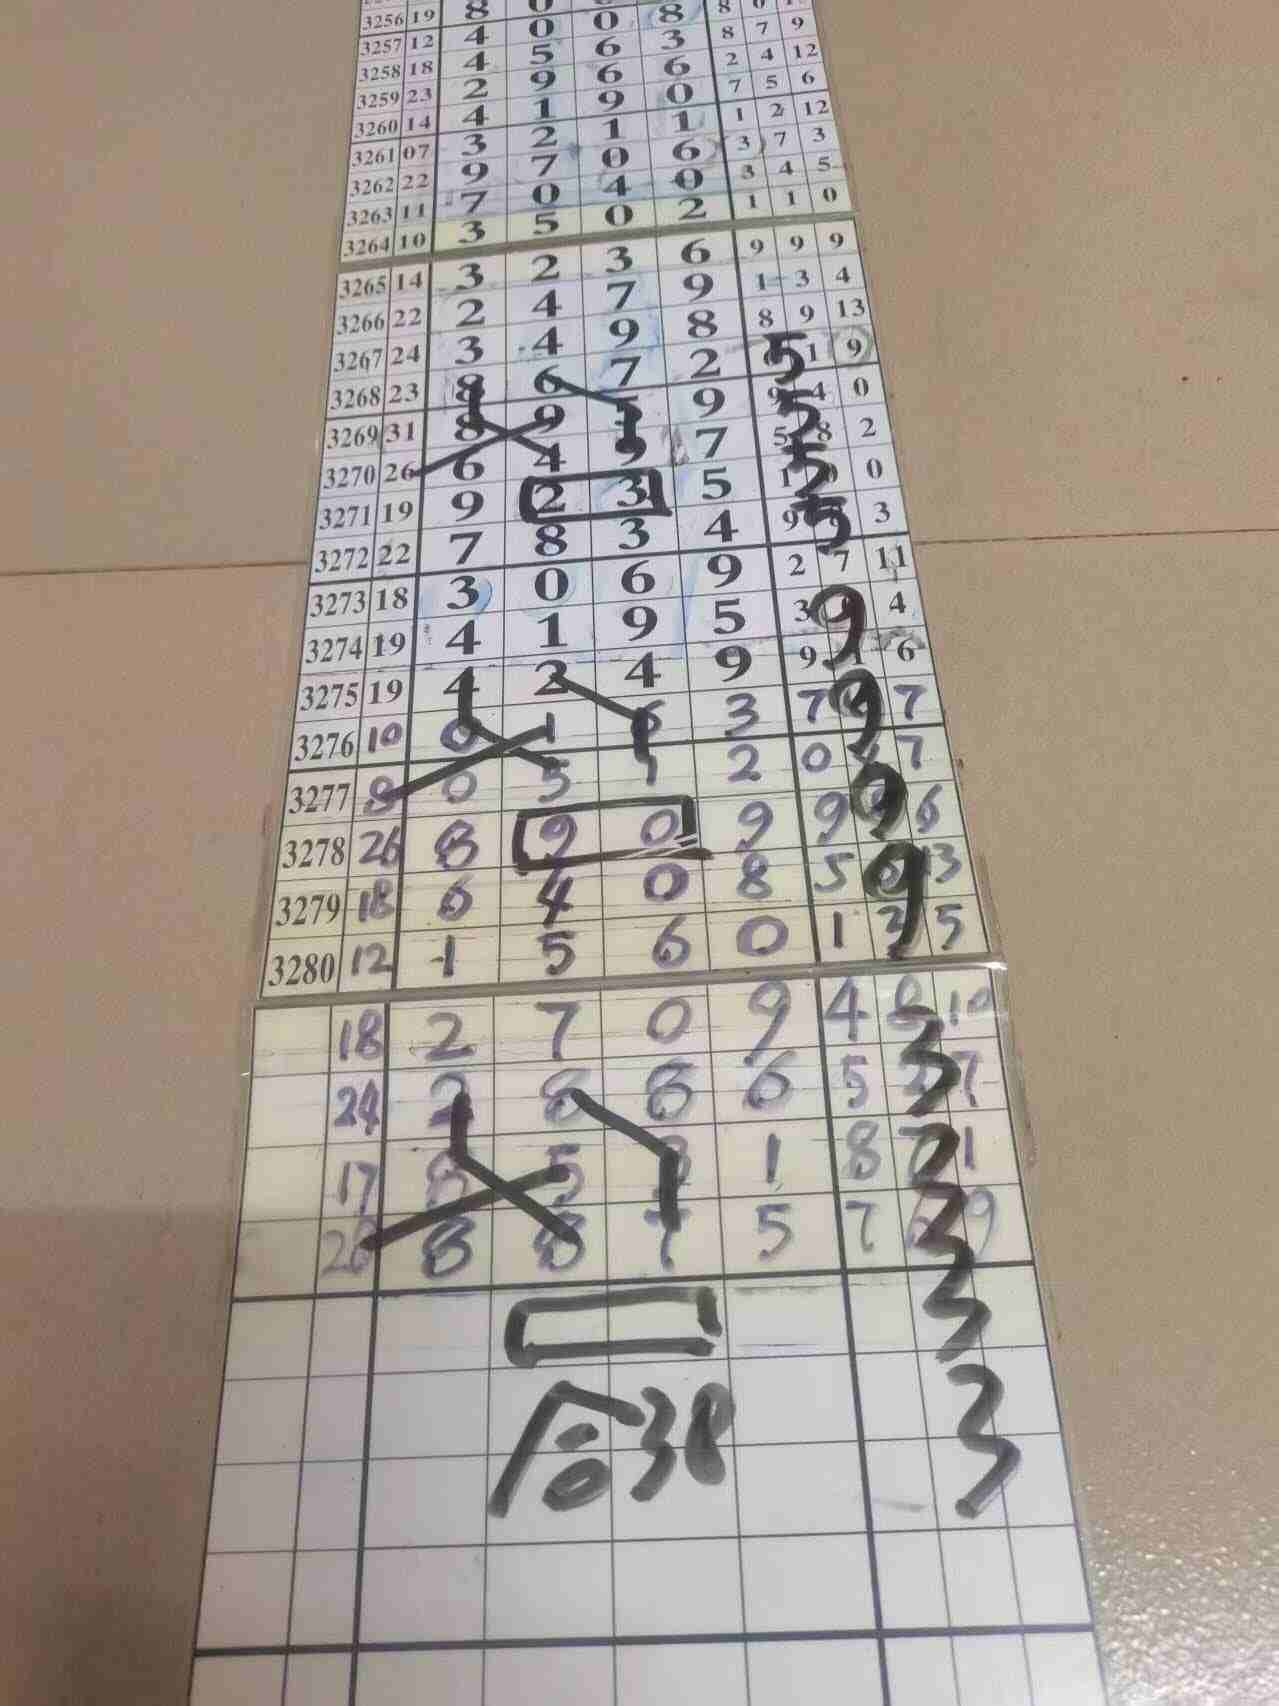 3256 19 8 0 0 8 8
3257 12 4 0 0 8 8 7 9
3258 18 4 5 6 3 2 4 12
3259 23 2 9 6 6 7 5 6
3260 14 4 1 9 0 1 2 12
3261 07 3 2 1 1 3 7 3
3262 22 9 7 0 6 3 4 5
3263 11 7 0 4 0 1 1 0
3264 10 3 5 0 2
3265 14 3 2 3 6 9 9 9
3266 22 2 4 7 9 1 3 4
3267 24 3 4 9 8 8 9 13
3268 23 8 6 7 2 5 1 9
3269 31 8 9 5 9 9 5 4 0
3270 26 6 4 9 7 5 5 8 2
3271 19 9 2 3 5 1 5 0
3272 22 7 8 3 4 9 5 3
3273 18 3 0 6 9 2 7 11
3274 19 4 1 9 5 3 9 4
3275 19 4 2 4 9 9 1 6
3276 10 0 1 6 3 7 9 7
3277 8 0 5 1 2 0 7
3278 26 8 9 0 9 9 9 6
3279 18 6 4 0 8 5 9 13
3280 12 1 5 6 0 1 5
18 2 7 0 9 4 10
24 2 8 8 6 5 3 7
17 8 5 3 1 8 7 1
28 8 8 7 5 7 3 9
3
合38 3
3